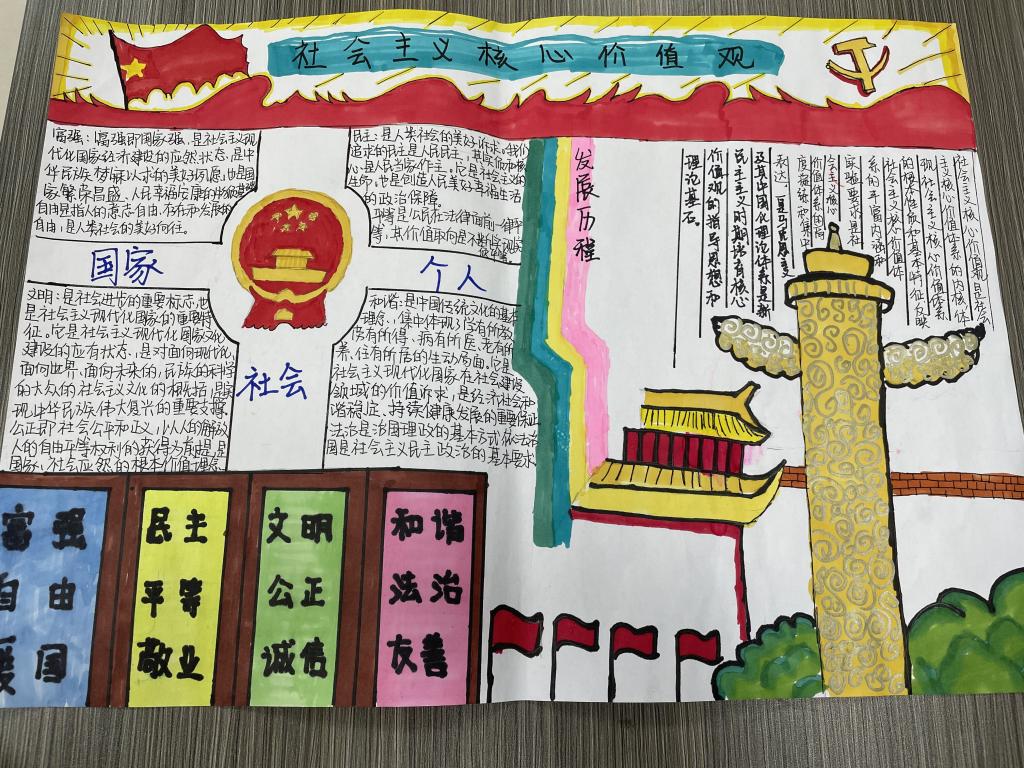 社会主义核心价值观
富强：富强即国家强，是社会主义现
代化国家经济建设的应然状态，是中
华民族梦寐以求的美好夙愿，也是国
家繁荣昌盛、人民幸福安康的物质基础
自由是指人的意志自由、存在和发展的
自由，是人类社会的美好向往。
民主：是人类社会的美好诉求。我们
追求的民主是人民民主，其实质和核
心是人民当家作主。它是社会主义的
生命，也是创造人民美好幸福生活
的政治保障。
平等是公民在法律面前一律平
等，其价值取向是不断实现
国家
个人
社会
文明：是社会进步的重要标志，也
是社会主义现代化国家的重要特
征。它是社会主义现代化国家文化
建设的应有状态，是对面向现代化、
面向世界、面向未来的，民族的科学
的大众的社会主义文化的概括，是实
现中华民族伟大复兴的重要支撑。
公正即社会公平和正义，以人的解放
人的自由平等权利的获得为前提，是
国家、社会应然的根本价值理念
和谐：是中国传统文化的基本
理念，集中体现了学有所教、
劳有所得、病有所医、老有所
养、住有所居的生动局面。它是建设
社会主义现代化国家在社会建设
领域的价值诉求，是经济社会和
谐稳定、持续健康发展的重要保证
法治是治国理政的基本方式，依法治
国是社会主义民主政治的基本要求
发展历程
社会主义核心价值观是社会
主义核心价值体系的内核，体
现社会主义核心价值体系
的根本性质和基本特征，反映
社会主义核心价值体
系的丰富内涵和
实践要求，是社
会主义核心
价值体系的高
度凝练和集中
表达。
及其中国化理论体系是新
民主主义时期培育核心
价值观的指导思想和
理论基石。
富强
自由
爱国
民主
平等
敬业
文明
公正
诚信
和谐
法治
友善